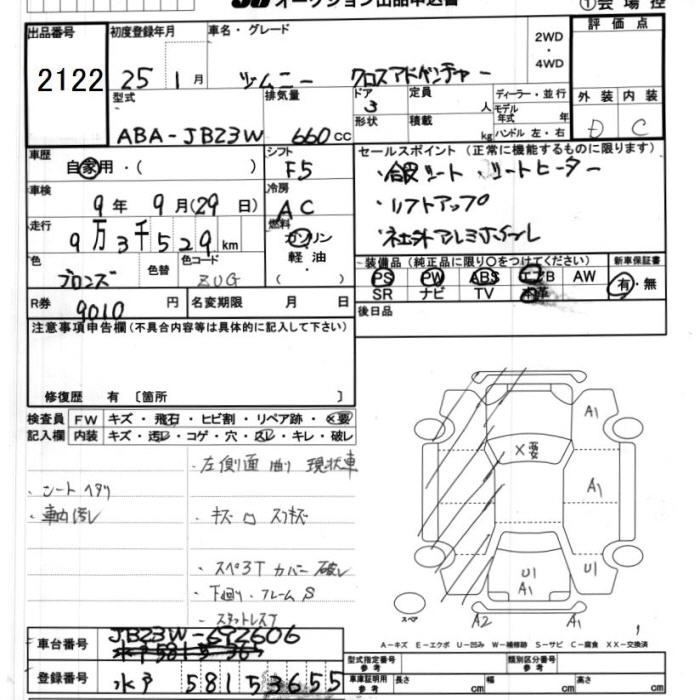 オークション出品申込書 ①会場控
出品番号 2122
初度登録年月 25 1月
車名・グレード ジムニー クロスアドベンチャー
2WD ・ 4WD
評価点
外装 D 内装 C
型式 ABA-JB23W
排気量 660cc
ドア 3 定員 人
形状 積載 kg
ディーラー・並行
モデル年式 年
ハンドル 左・右
車歴 自家用・( )
シフト F5
セールスポイント(正常に機能するものに限ります)
・合皮シート ・シートヒーター
・リフトアップ
・社外アルミホイール
車検 9年 9月(29日)
冷房 AC
走行 9万3千529km
燃料 ガソリン 軽油・( )
色 ブロンズ 色替 色コード ZUG
装備品(純正品に限り○をつけてください) 新車保証書
PS PW ABS エアB AW 有・無
SR ナビ TV 本革
R券 9010円 名変期限 月 日
後日品
注意事項申告欄(不具合内容等は具体的に記入して下さい)
修復歴 有〔箇所 〕
検査員 FW キズ・飛石・ヒビ割・リペア跡・×要
記入欄 内装 キズ・汚レ・コゲ・穴・スレ・キレ・破レ
・左側面 曲り 現状車
・シートヘタリ
・車内汚レ ・キズ
・スペアT カバー破レ
・下廻り・フレームS
×要
A1
A1
U1
A1
U1
スペア A2 A1
A-キズ E-エクボ U-凹み W-補修跡 S-サビ C-腐食 XX-交換済
車台番号 JB23W-692606
登録番号 水戸 581 5 3655
型式指定番号 参考 類別区分番号 参考
車庫証明用 参考 長さ cm 幅 cm 高さ cm